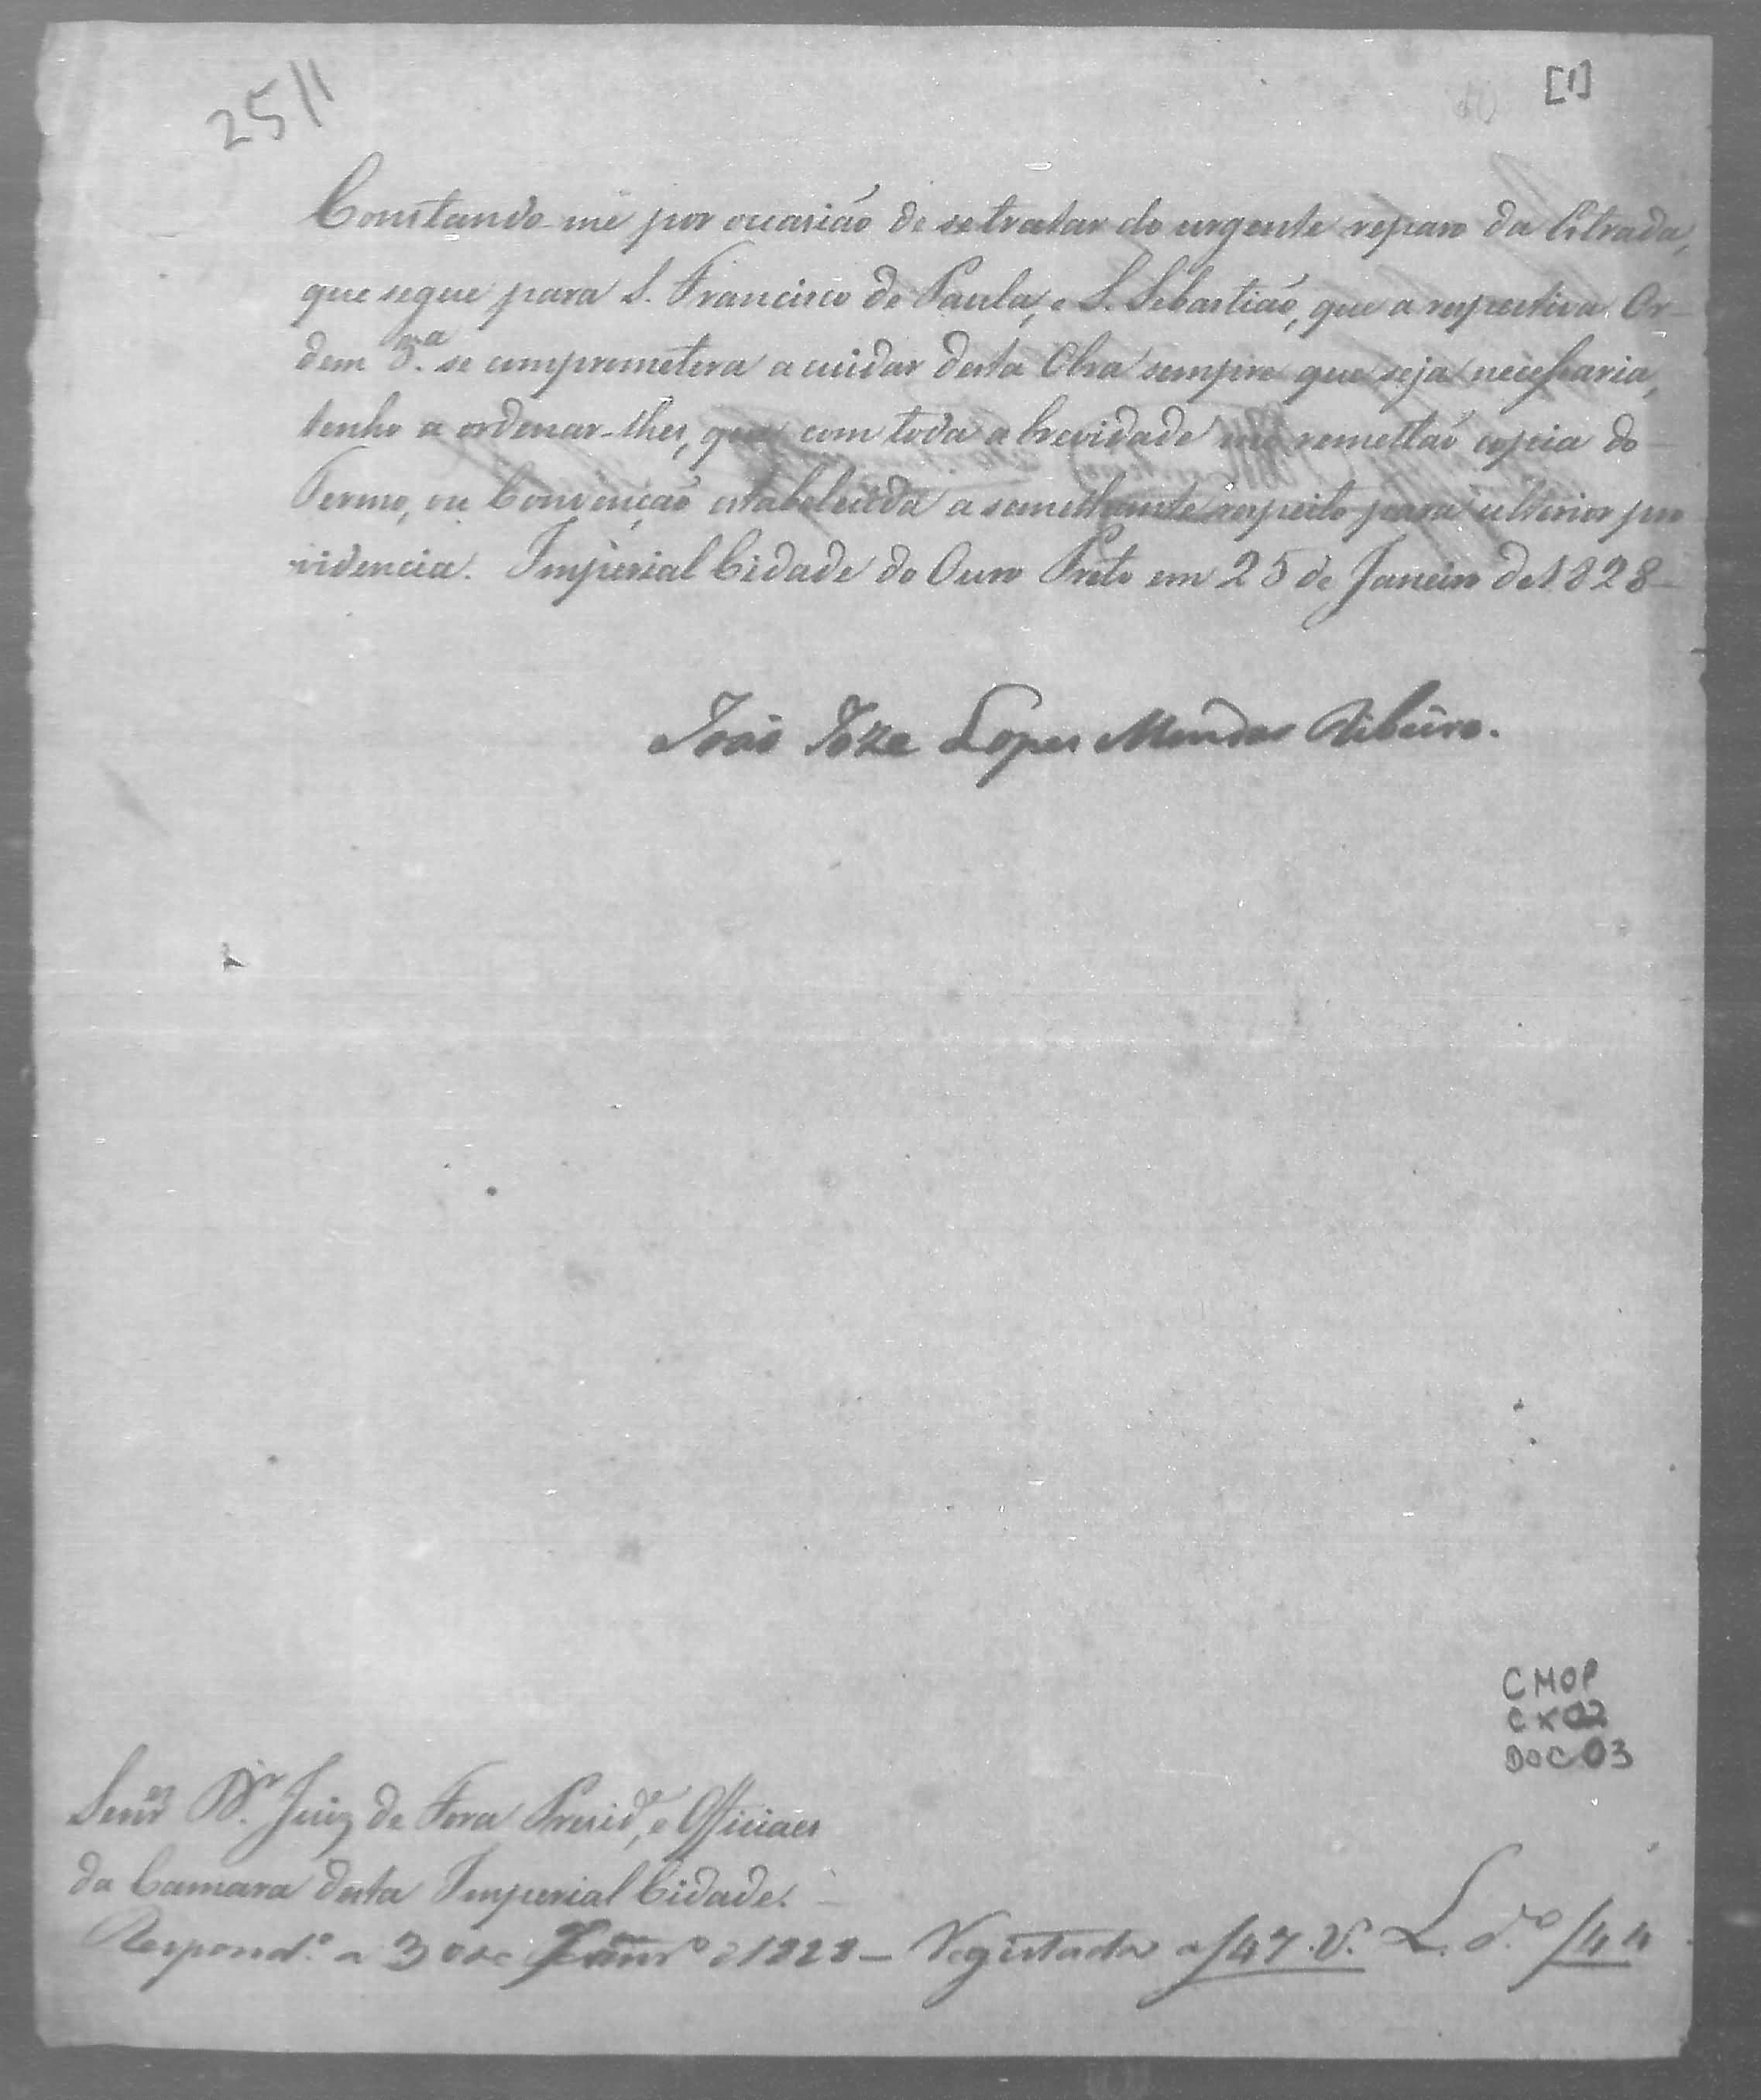 25//
[1]
Constando-me por occasião de se tratar do urgente reparo da Estrada,
que segue para S. Francisco de Paula, e S. Sebastião, que a respectiva Or-
dem 3.ª se comprometera a cuidar desta Obra sempre que seja necessaria,
tenho a ordenar-lhes, que com toda a brevidade me remettão copia do
Termo, ou Convenção estabelecida a semelhante respeito para ulterior pro
videncia. Imperial Cidade do Ouro Preto em 25 de Janeiro de 1828
João Joze Lopes Mendes Ribeiro.
CMOP
CX02
DOC 03
Senr.es Dr. Juiz de Fora Presid.e, e Officiaes
da Camara desta Imperial Cidade.
Respond.º a 30 de Janr.º d 1828 — Registada a f 47. V. L. d.º f 44